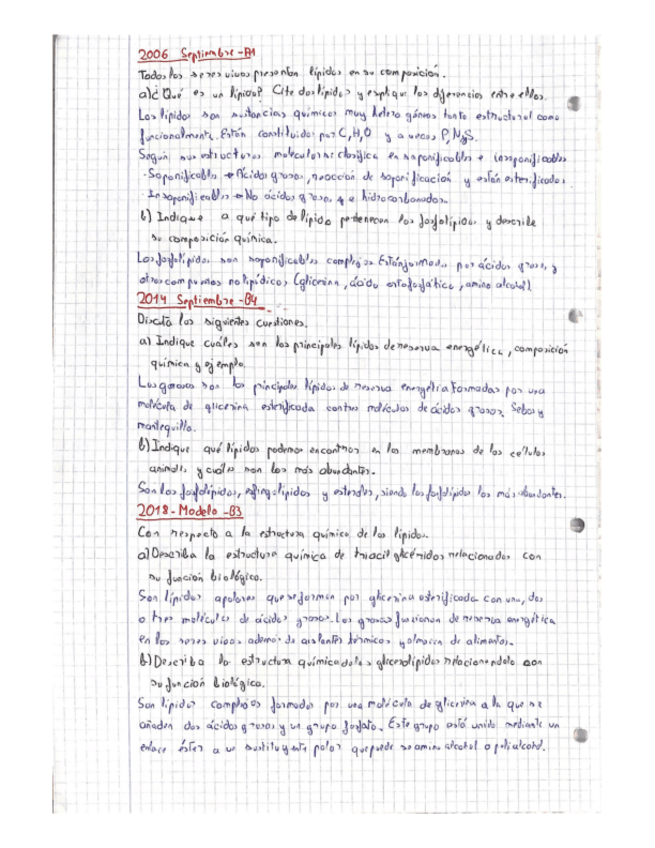 2006 Septiembre -A1
Todos los seres vivos presentan lípidos en su composición.
a) ¿Qué es un lípido? Cite dos lípidos y explique las diferencias entre ellos.
Los lípidos son sustancias químicas muy heterogéneas tanto estructural como
funcionalmente. Están constituidos por C, H, O y a veces P, N y S.
Según sus estructuras moleculares se clasifica en saponificables e insaponificables
- Saponificables → Ácidos grasos, reacción de saponificación y están esterificados
- Insaponificables → No ácidos grasos, hidrocarbonados.
b) Indique a qué tipo de lípido pertenecen los fosfolípidos y describe
su composición química.
Los fosfolípidos son saponificables complejos. Están formados por ácidos grasos y
otros compuestos no lipídicos (glicerina, ácido ortofosfático, amino alcohol)
2014 Septiembre -B4
Discuta las siguientes cuestiones.
a) Indique cuáles son los principales lípidos de reserva energética, composición
química y ejemplo.
Las grasas son los principales lípidos de reserva energética formadas por una
molécula de glicerina esterificada con tres moléculas de ácidos grasos. Sebos y
mantequilla.
b) Indique qué lípidos podemos encontrar en las membranas de las células
animales y cuáles son los más abundantes.
Son los fosfolípidos, esfingolípidos y esteroles, siendo los fosfolípidos los más abundantes.
2018 - Modelo -B3
Con respecto a la estructura química de los lípidos.
a) Describa la estructura química de triacilglicéridos relacionados con
su función biológica.
Son lípidos apolares que se forman por glicerina esterificada con una, dos
o tres moléculas de ácidos grasos. Las grasas funcionan de reserva energética
en los seres vivos, además de aislantes térmicos y almacen de alimentos.
b) Describa la estructura química de los glicerolípidos relacionándola con
su función biológica.
Son lípidos complejos formados por una molécula de glicerina a la que se
añaden dos ácidos grasos y un grupo fosfato. Este grupo está unido mediante un
enlace éster a un sustituyente polar que puede ser amino alcohol o polialcohol.